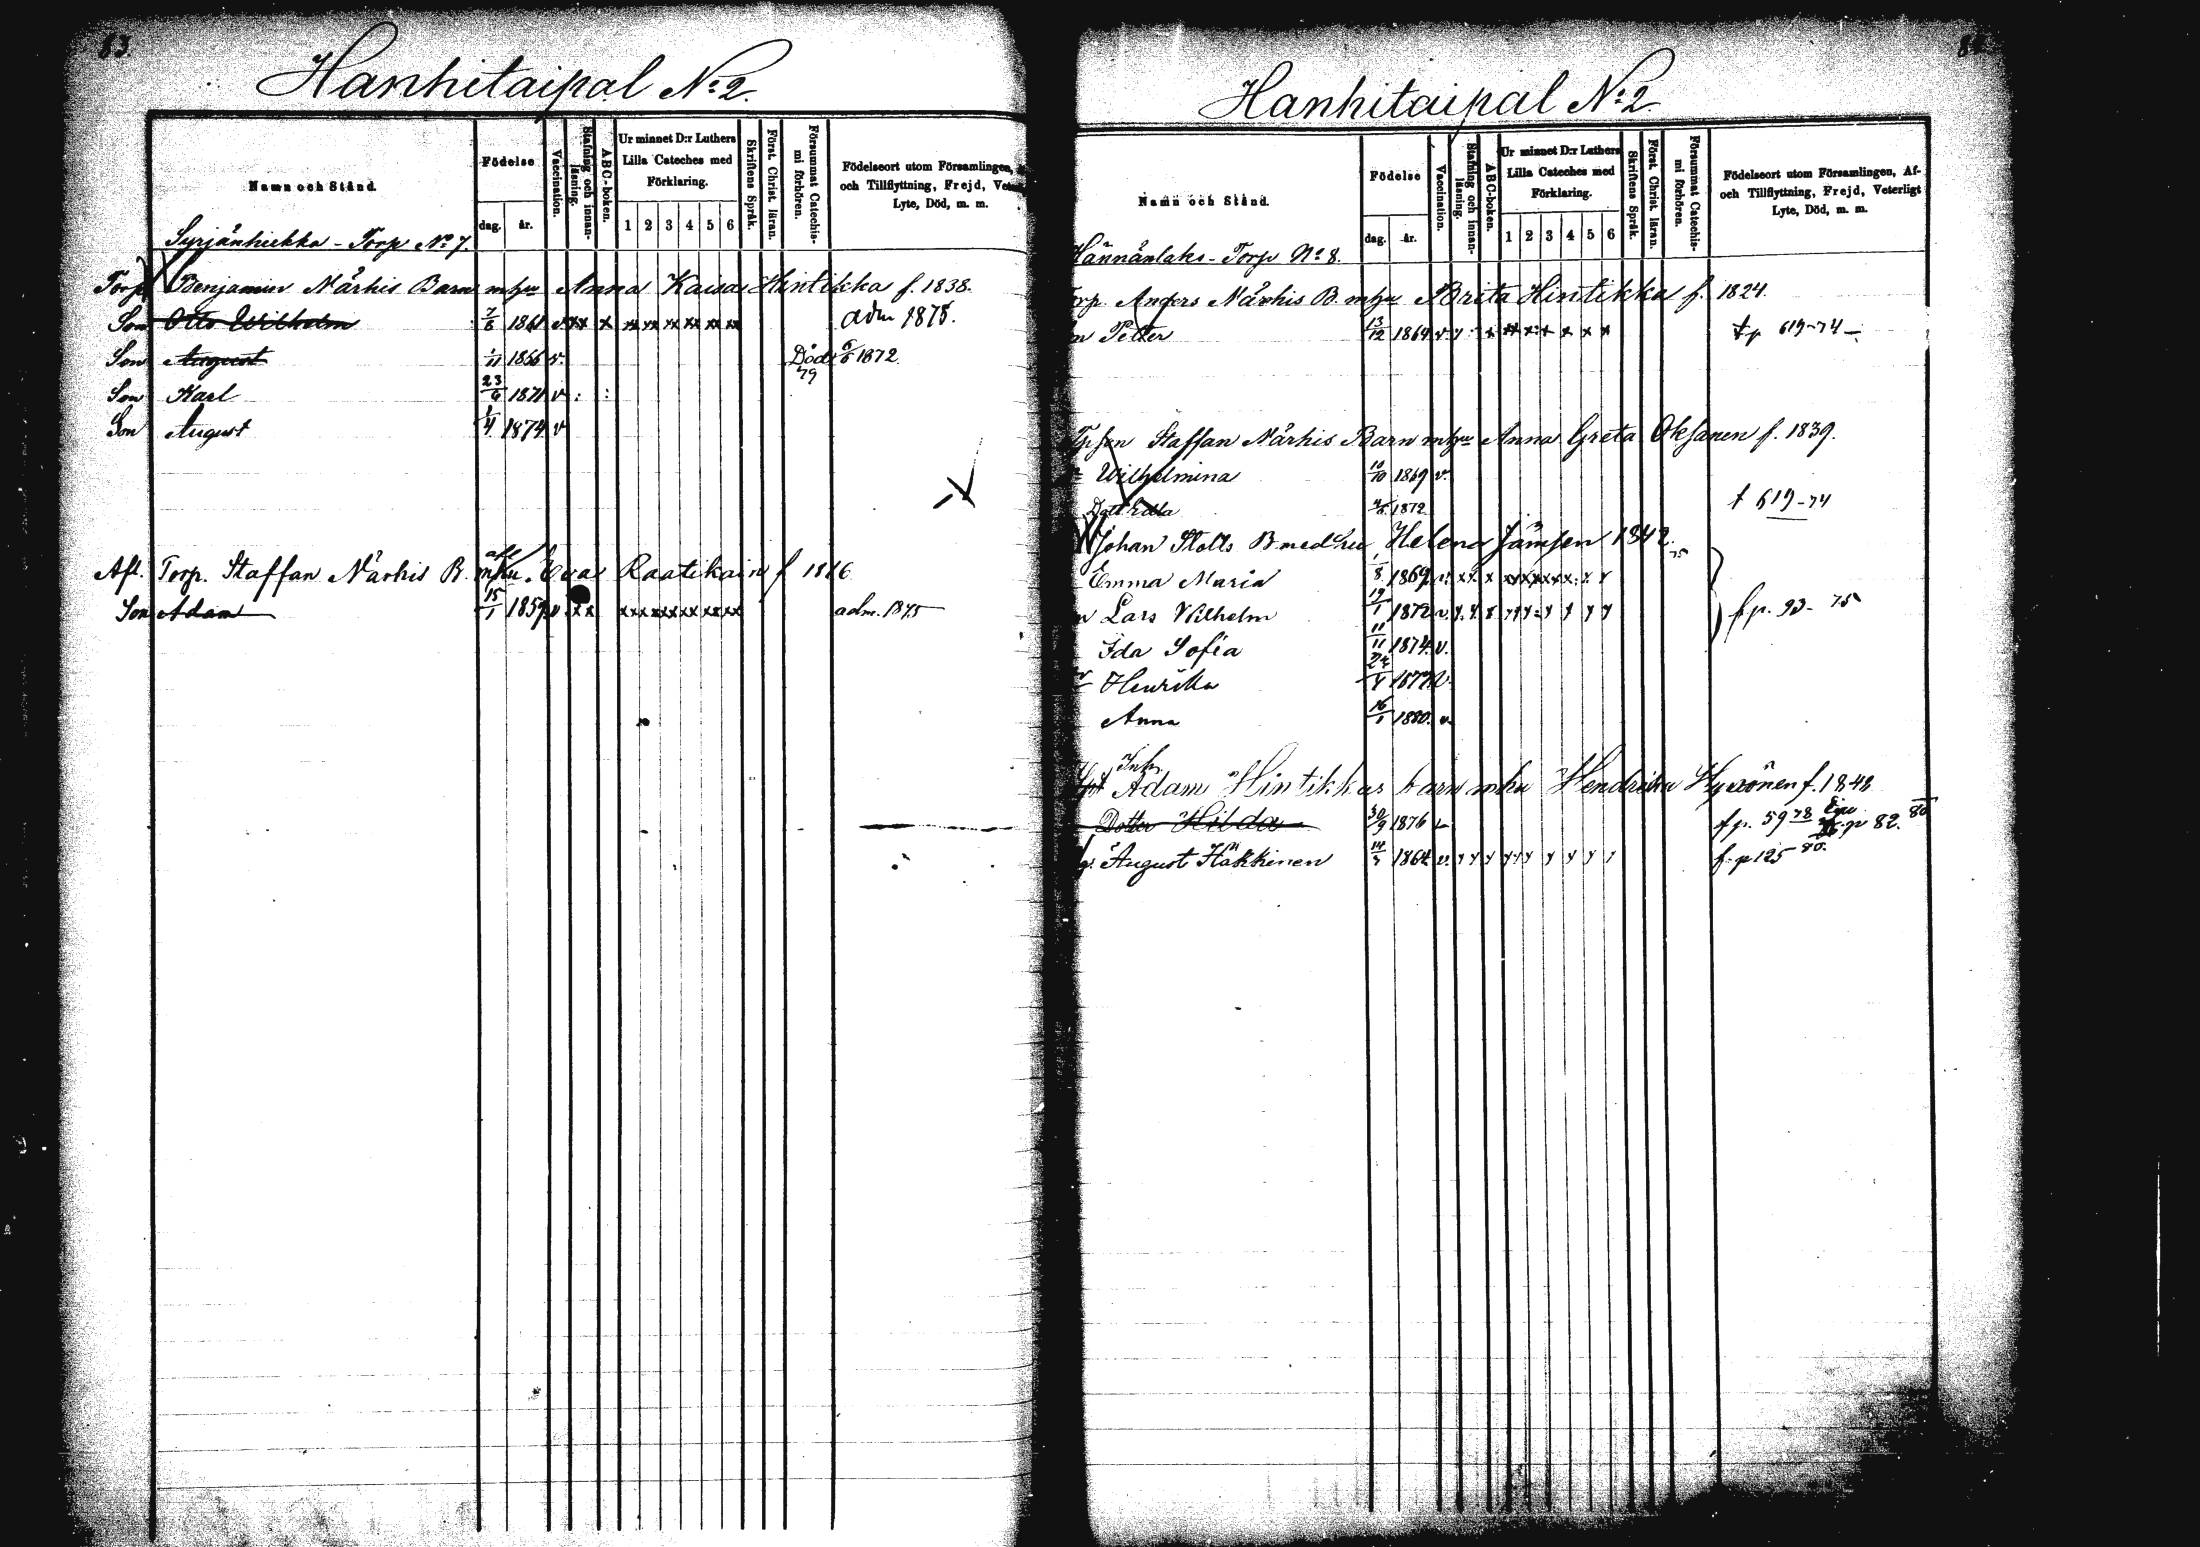 83.
Hanhitaipal No 2.
Namn och Stånd.
Födelse
dag. år.
Vaccination.
Stafning och innan-läsning.
ABC-boken.
Ur minnet D:r Luthers Lilla Cateches med Förklaring.
1 2 3 4 5 6
Skriftens Språk.
Först. Christ. läran.
Försummat Catechis-mi förhören.
Födelseort utom Församlingen,
och Tillflyttning, Frejd,
Lyte, Död, m. m.
Syrjänhiekka - Torp No 7.
Torp Benjamin Närhis Barn mhu Anna Kaisa Hintikka f. 1838.
Son Otto Wilhelm 1861 v xx x xx xx xx xx xx xx adm 1875.
Son August 1/11 1866 v. Död 1872.
79
Son Karl 23/9 1871 v : :
Son August 1/4 1874 v
Afl. Torp. Staffan Närhis B. mhu. afl Eva Raatikain f 1816
Son Adam 15/1 1859 v xx xx xx xx xx xx xx adm. 1875
Hanhitaipal No 2.
Namn och Stånd.
Födelse
dag. år.
Vaccination.
Stafning och innan-läsning.
ABC-boken.
Ur minnet D:r Luthers Lilla Cateches med Förklaring.
1 2 3 4 5 6
Skriftens Språk.
Först. Christ. läran.
Försummat Catechis-mi förhören.
Födelseort utom Församlingen, Af-
och Tillflyttning, Frejd, Veterligt
Lyte, Död, m. m.
Hännänlaks - Torp No 8.
Anders Närhis B. mhu Brita Hintikka f. 1824.
Petter 13/12 1864 v. tp 619-74
Staffan Närhis Barn mhu Anna Greta Oksanen f. 1839.
Wilhelmina 10/10 1869 v.
Dott Edla 1872 t 619-74
Johan Stolts B medhu Helena Jämsen 1842.
75
Emma Maria 1/8 1869 v. xx x
Lars Wilhelm 19/1 1872 v. fp. 93-75
Ida Sofia 11/11 1874 v.
Henrika 1877 v.
Anna 16/1 1880. v.
Inh.
Adam Hintikkas barn mhu Hendrika Hyvönen f. 1848
Dotter Hilda 30/9 1876 v fp. 59 78 p 82. 80
August Häkkinen 1864 v. f. p 125 80.